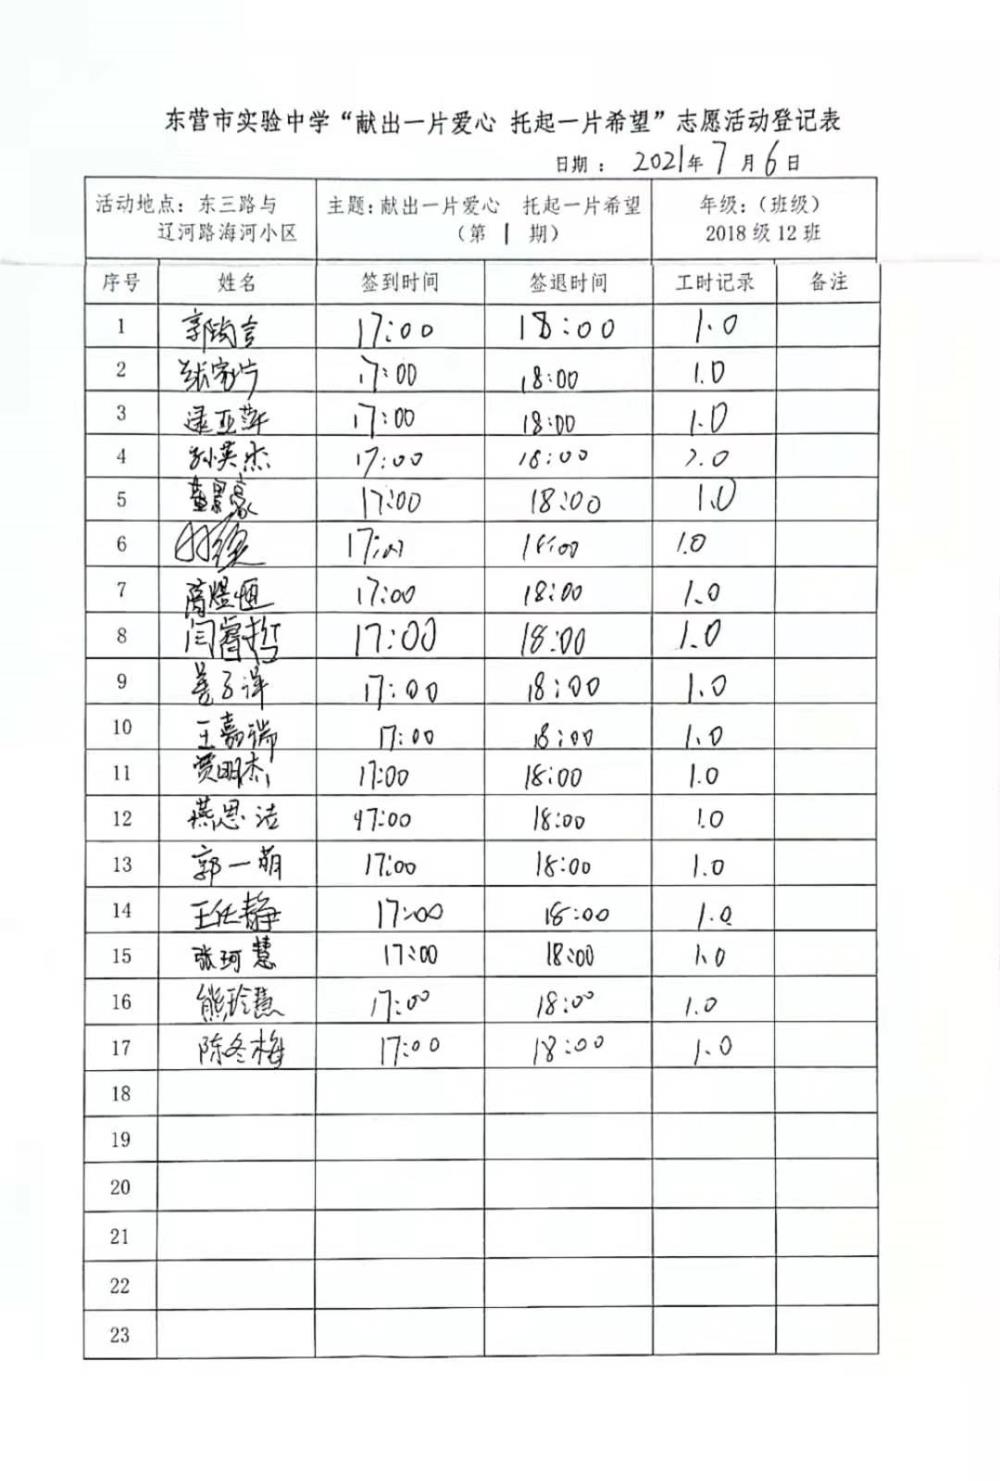 东营市实验中学“献出一片爱心 托起一片希望”志愿活动登记表
日期： 2021年7月6日
活动地点：东三路与 主题：献出一片爱心 托起一片希望 年级：（班级）
辽河路海河小区 （第 1 期） 2018级12班
序号 姓名 签到时间 签退时间 工时记录 备注
1 17:00 18:00 1.0
2 17:00 18:00 1.0
3 逯亚萍 17:00 18:00 1.0
4 孙英杰 17:00 18:00
5 17:00 18:00 1.0
6 18:00 1.0
7 17:00 18:00 1.0
8 闫睿哲 17:00 18:00 1.0
9 17:00 18:00 1.0
10 王嘉瑞 17:00 18:00 1.0
11 贾明杰 17:00 18:00 1.0
12 燕思洁 17:00 18:00 1.0
13 郭一萌 17:00 18:00 1.0
14 王任静 17:00 18:00 1.0
15 张珂慧 17:00 18:00 1.0
16 熊玲慧 17:00 18:00 1.0
17 陈冬梅 17:00 18:00 1.0
18
19
20
21
22
23